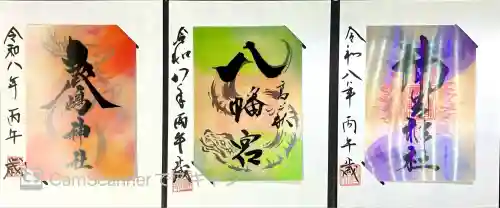 令和八年 丙午
歳
嶋神社
令和八年丙午歳
八幡宮
令和八年 丙午歳
社
CamScanner でスキャン